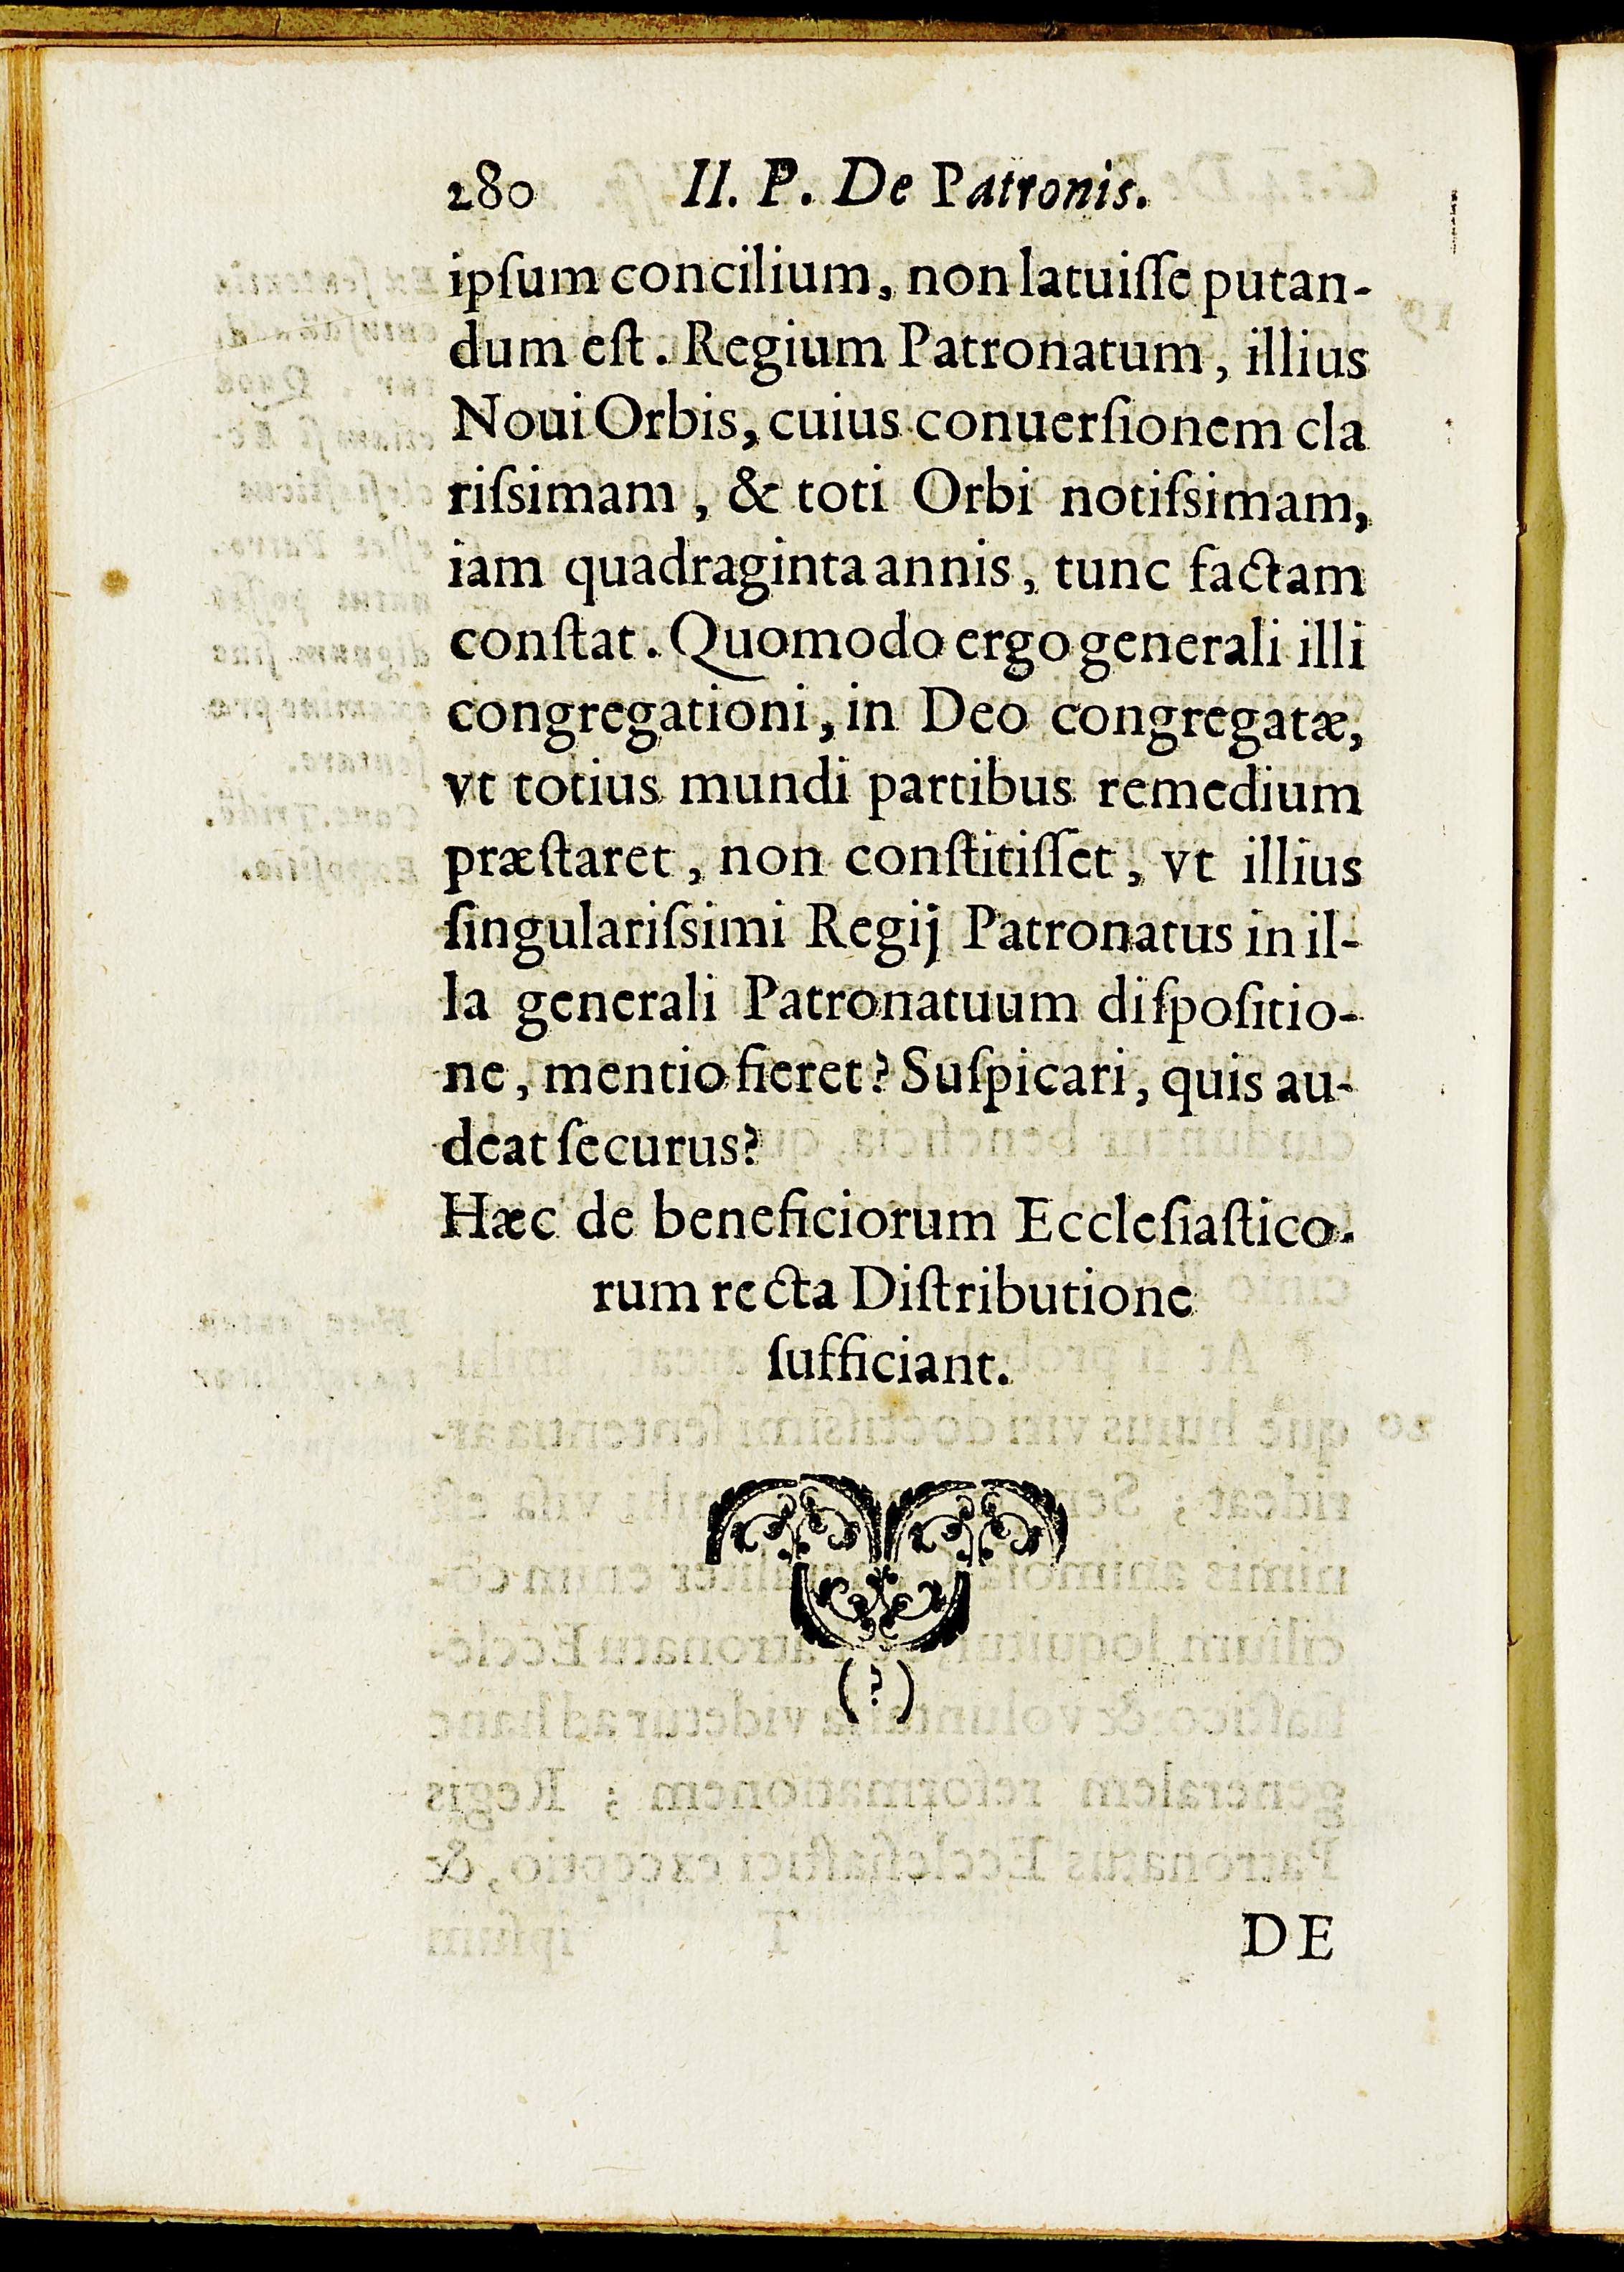 280 II. P. De Patronis.
ipſum concilium, non latuiſſe putan-
dum eſt. Regium Patronatum, illius
Noui Orbis, cuius conuerſionem cla
riſsimam, & toti Orbi notiſsimam,
iam quadraginta annis, tunc factam
conſtat. Quomodo ergo generali illi
congregationi, in Deo congregatæ,
vt totius mundi partibus remedium
præſtaret, non conſtitiſſet, vt illius
ſingulariſsimi Regij Patronatus in il-
la generali Patronatuum diſpoſitio-
ne, mentio fieret? Suſpicari, quis au-
deat ſecurus?
Hæc de beneficiorum Eccleſiaſtico.
rum recta Diſtributione
ſufficiant.
(?)
DE